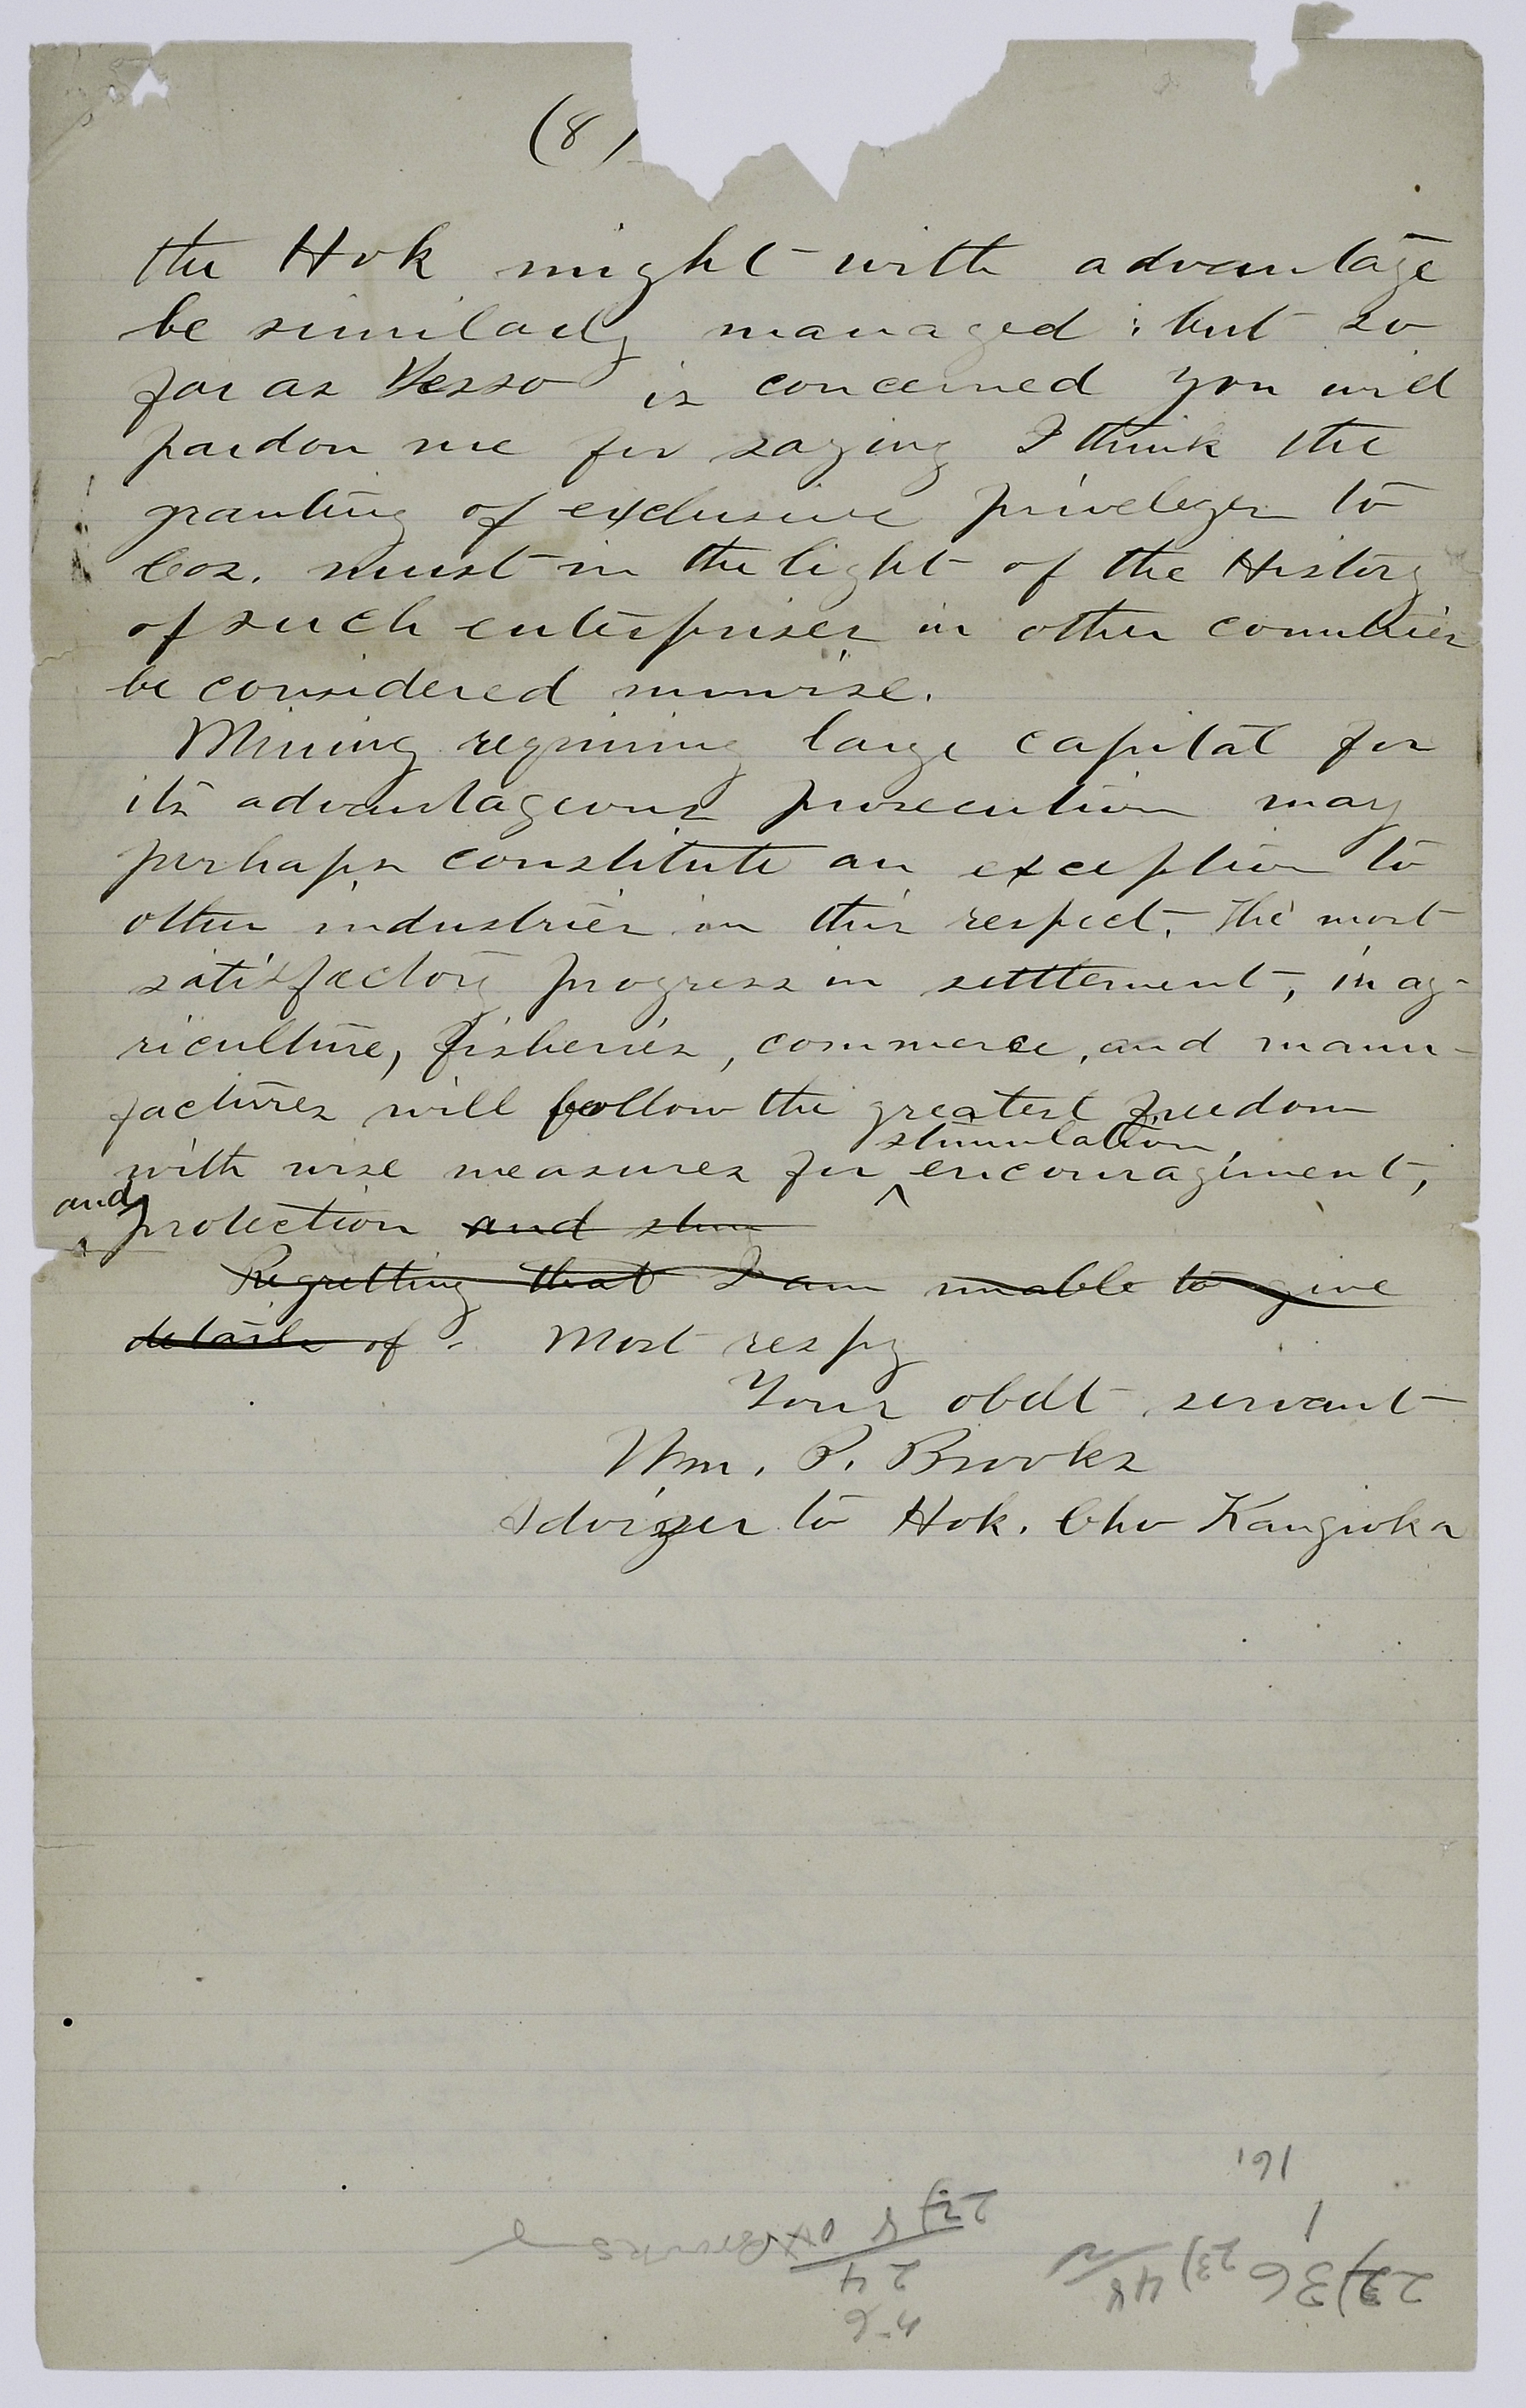 (8)
the Hok might with advantage
be similarly managed; but so
far as Yesso is concerned you will
pardon me for saying I think the
granting of exclusive priveleges to
Cos. must in the light of the History
of such enterprises in other countries
be considered unwise.
Mining requiring large capital for
its advantageous prosecution may
perhaps constitute an exception to
other industries in this respect. The most
satisfactory progress in settlement, in ag-
riculture, fisheries, commerce, and manu-
factures will follow the greatest freedom
stimulation,
with wise measures for encouragement,
and
protection and stim
Regretting that I am unable to give
details of. Most respy
Your obdt servant
Wm. P. Brooks
Adviser to Hok. Cho Kangioka
161
1
23)36
23)48
2